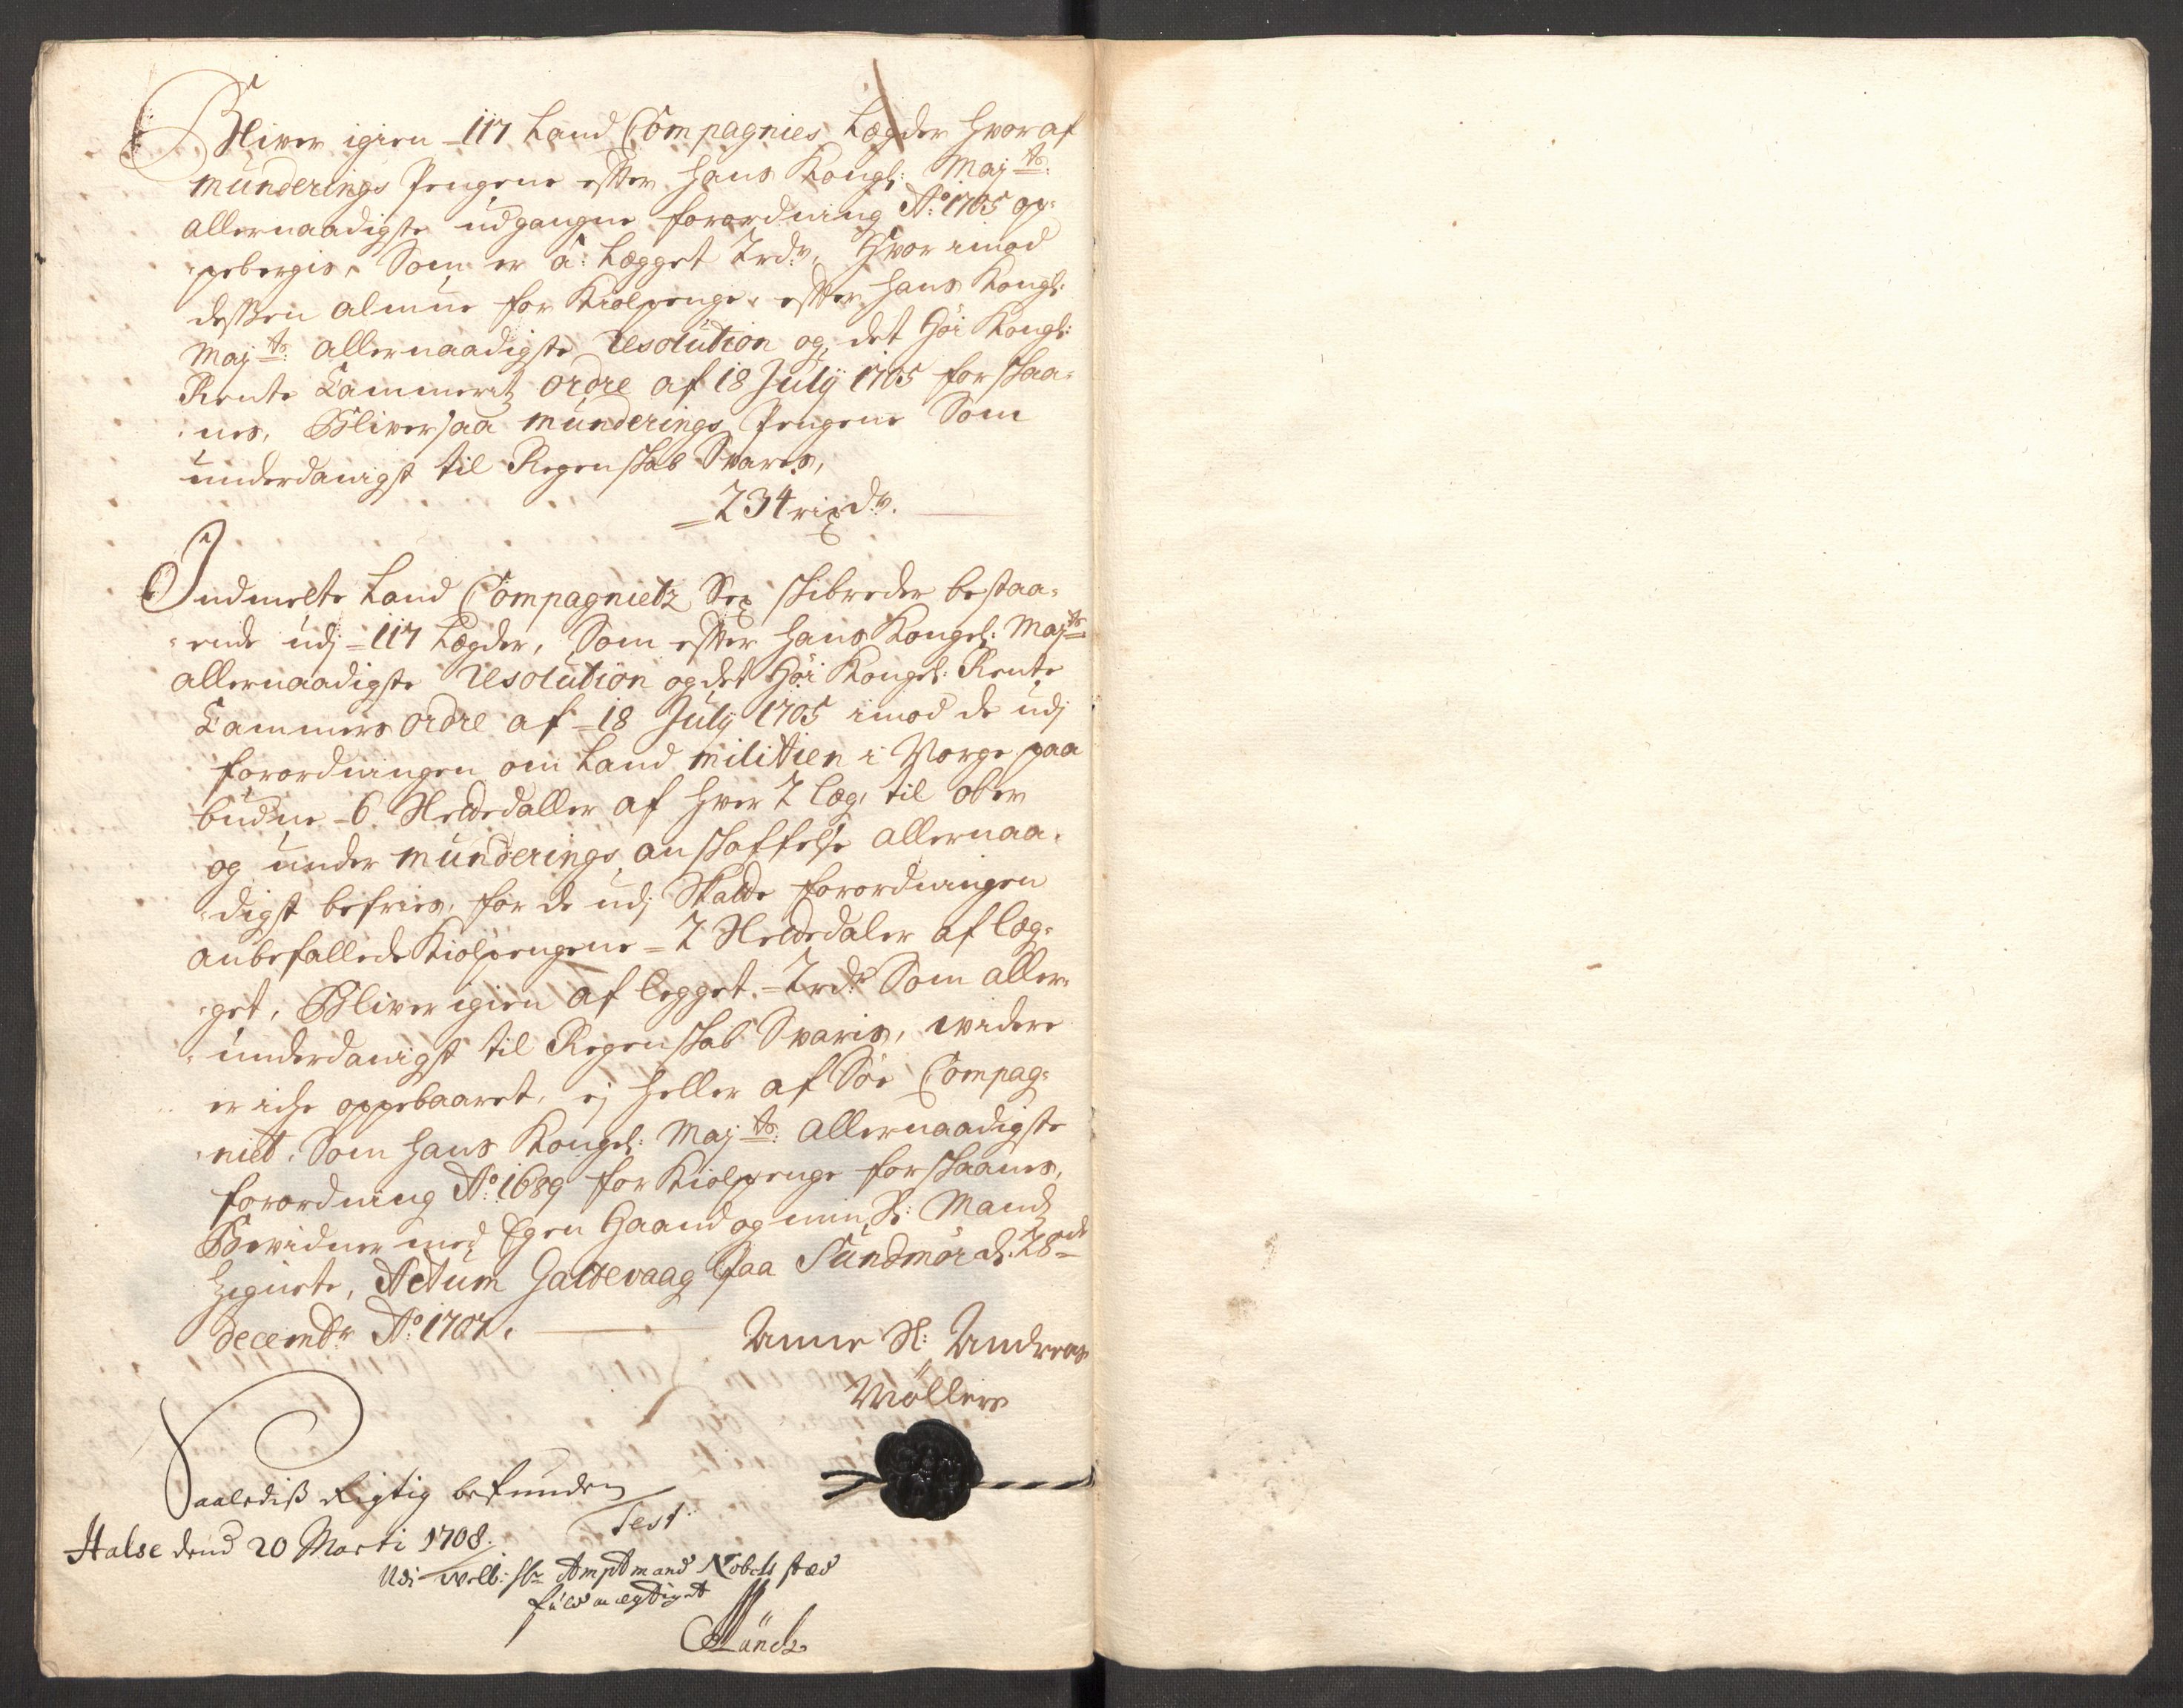 Bliver igien 117 Land Compagnies Lægder hvoraf
munderings Pengene efter Hans Kongl: May:ts
allernaadigste udgangne forordning A:o 1705 op-
pebergis, Som er á: Lægget 2 rd:r, Hvor imod
dessen almue for Kiolpenge, efter Hans Kongl:
May:ts allernaadigste Resolution og det Høi Kongl:
Rente Cammeritz ordre af 18 July 1705 forskaa-
nes, Bliver saa munderings Pengene Som
underdanigst til Regenskab Svaris,
234 rixd:r.
Indmelte Land Compagnietz Sex skibreder bestaa-
ende udj 117 Lægder, Som efter Hans Kongel: May:ts
allernaadigste Resolution og det Høi Kongel: Rente
Cammers ordre af 18 July 1705 imod de udj
forordningen om Land militien i Norge paa
budne 6 Sletdaller af hver 2 læg, til ober
og under munderings anskaffelse allernaa-
digst befries, for de udj Skatte forordningen
anbefallede Kiolpengene 2 Sletdaler af læg-
get, Bliver igien af legget 2 rd:r Som aller-
underdanigst til Regenskab Svaris, widere
er iche oppebaaret, ej heller af Søe Compag-
niet, Som Hans Kongel: May:ts allernaadigste
forordning A:o 1689 for Kiolpenge forskaanes,
Bevidner med Egen Haand og min Sl: Mands
Zignete, Actum Galtevaag paa Sundmör d: 28de
decembr A:o 1707.
Anne Sl: Andreas
Möllers
Saalediß Rigtig befunden
Test:
Halse dend 20 Marti 1708.
Udi Welb: Hr Amptmand Nobels sted
fuldmegtiget
Münch